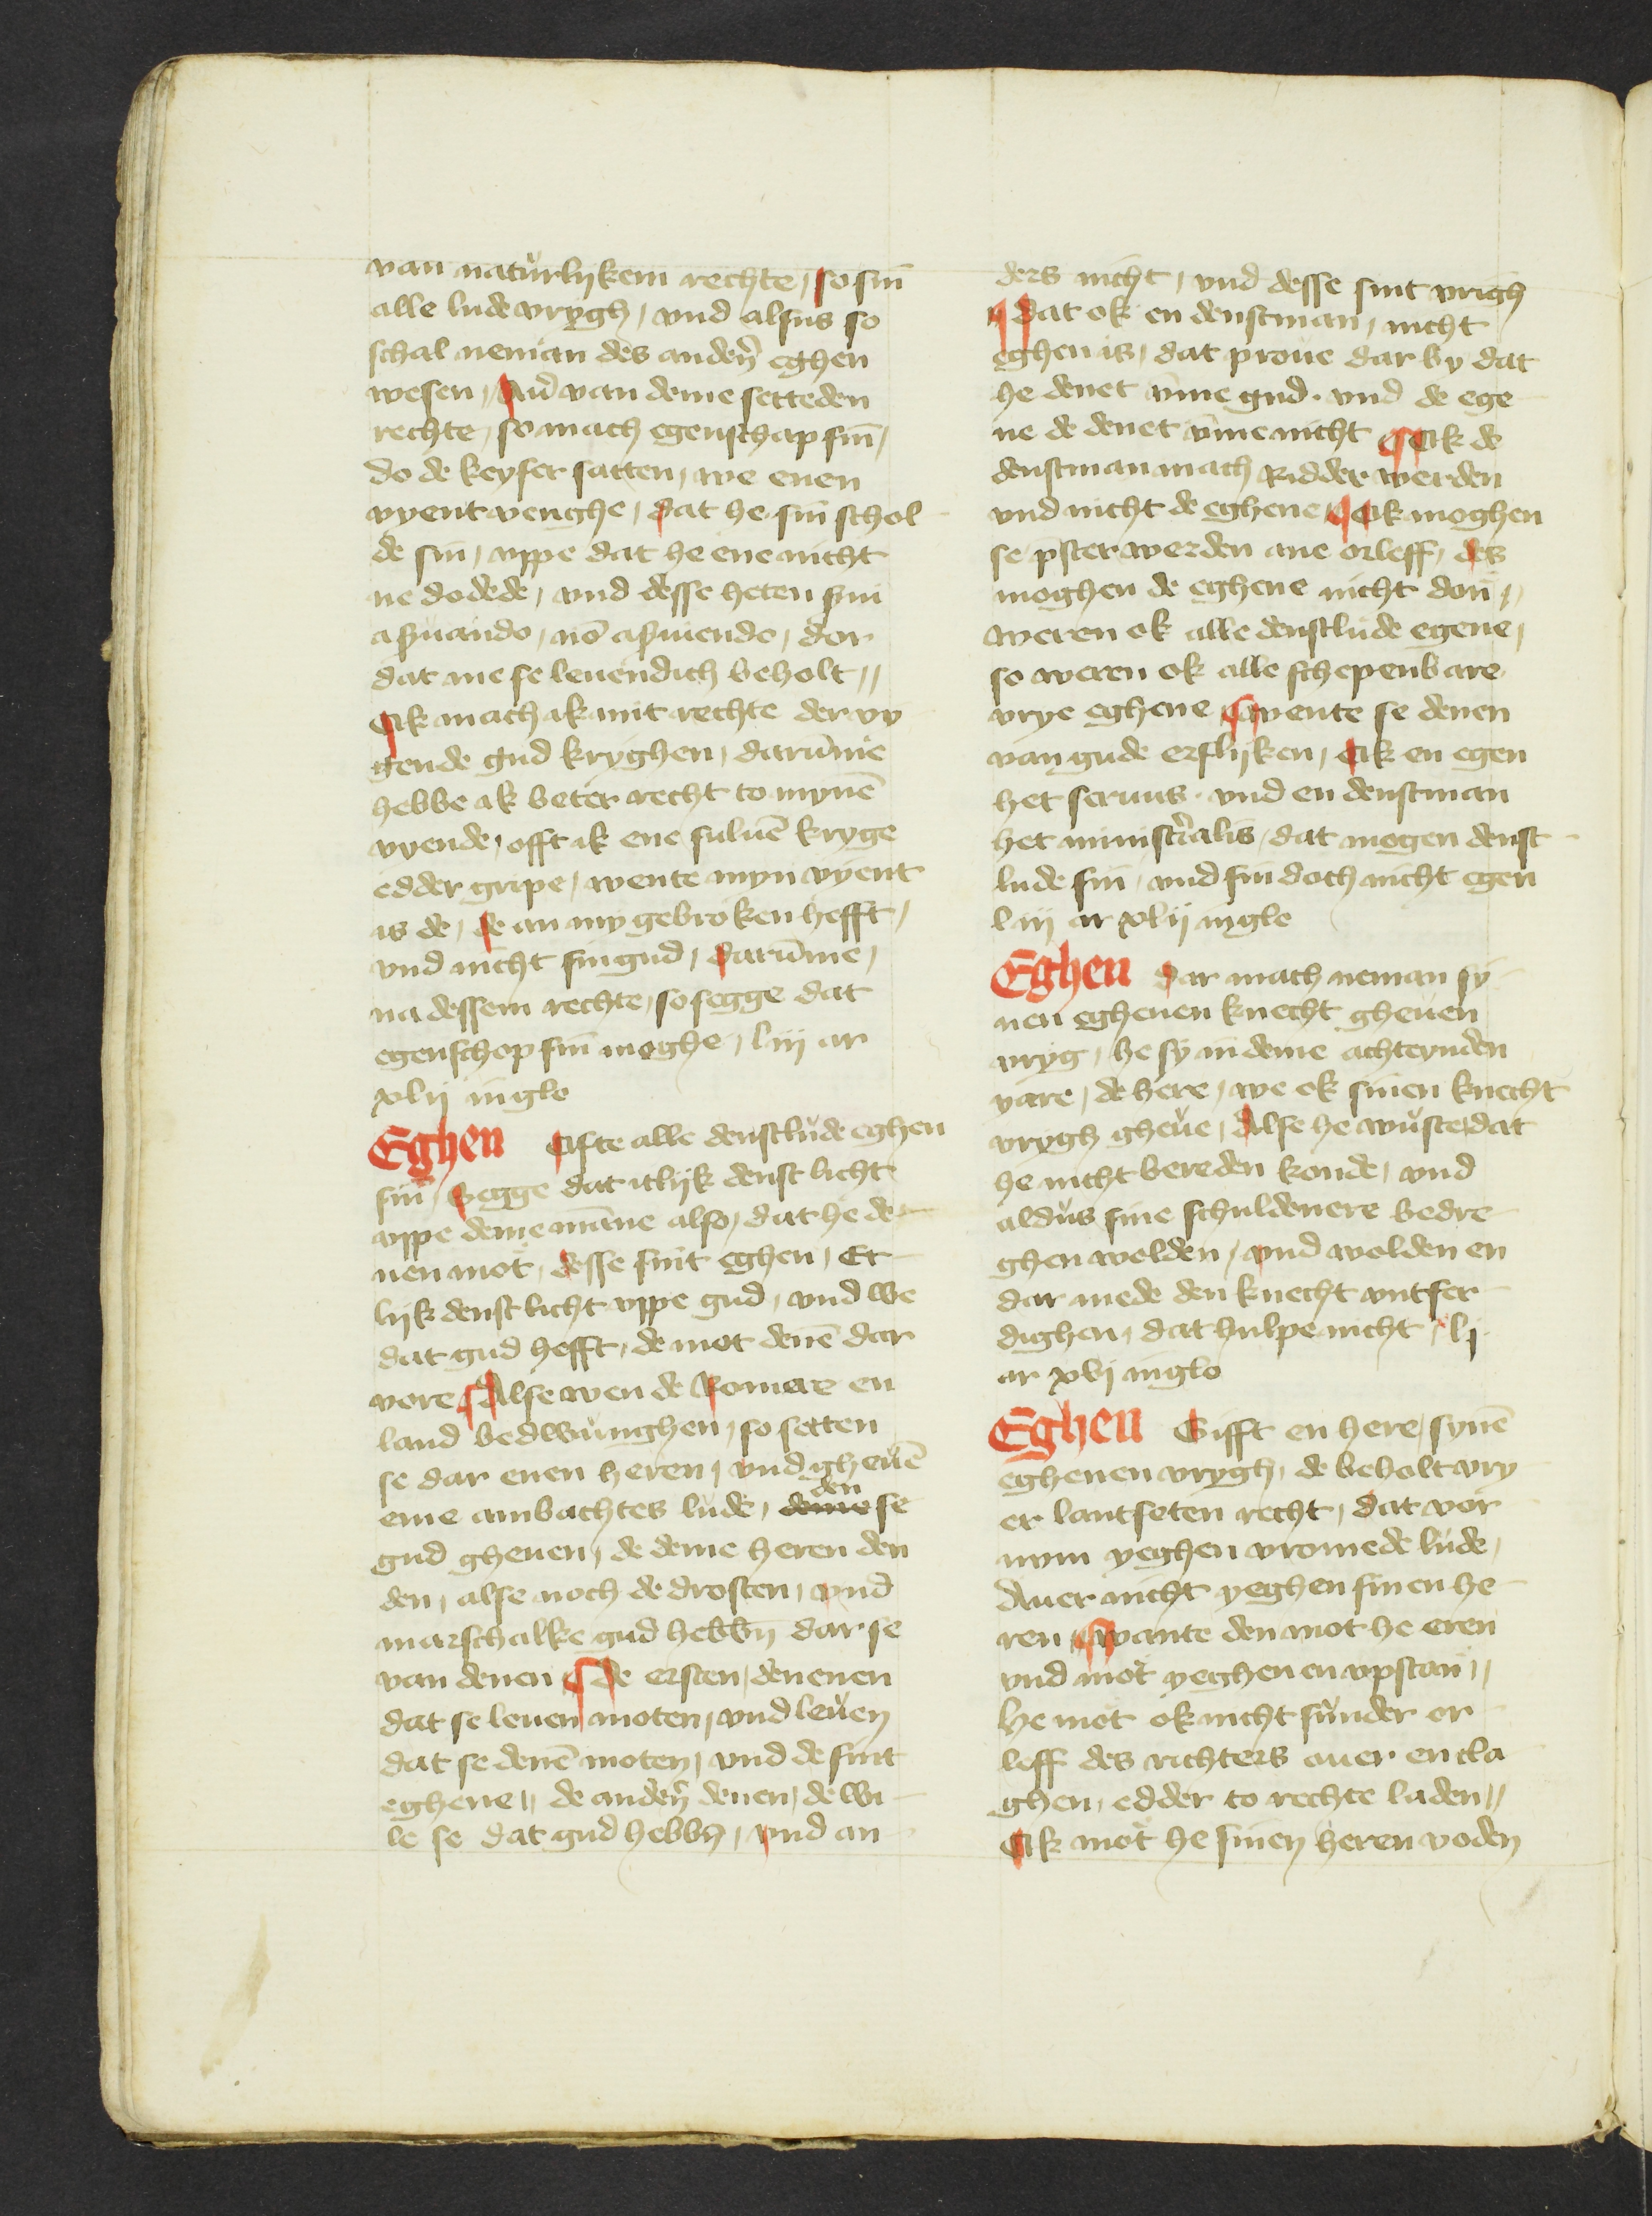 van naturlykem rechte / so sin
alle lude vrygh / vnd alsus so
schal neman des anderen eghen
wesen / Auer van deme setteden
rechte / so mach egenschap sin /
do de keyser satten / we enen
vyent venghe / dat he sin schol
de sin / vppe dat he ene nicht
ne dodede / vnd desse heten sui
a suando / no a suiendo / dor
dat me se leuendich beholt //
Ok mach ik mit rechte der vy
gende gud kryghen / darūme
hebbe ik beter recht to mynē
vyende / offt ik ene suluē kryge
edder gripe / wente myn vyent
is de / de an my gebroken hefft /
vnd nicht sin gud / darūme /
na dessem rechte / so segge dat
egenschop sin moghe / liij ar
xlij in glo
Eghen Ofte alle denstlude eghen
sin / Segge dat itlyk denst licht
vppe deme manne also / dat he de
nen mot / desse sint eghen / Et
lyk denst licht vppe gud / vnd we
dat gud hefft / de mot denē dar
vore ¶ Alse wen de Romere en
land bedwunghen / so setten
se dar enen heren / vnd gheuē
eme ambachtes lude / deme den se
gud gheuen / de deme heren den
den / alse noch de drosten / vnd
marschalke gud hebbn dar se
van denen ¶ De ersten / denenen
dat se leuen moten / vnd leuen
dat se denē moten / vnd de sint
eghene // de andern denen / de wi
le se dat gud hebbn / vnd an
ders nicht / vnd desse sint vrigh
¶ Dat ok en denstman / nicht
eghen is / dat proue dar by dat
he denet vmme gud . vnd de ege
ne de denet vmme nicht ¶ Ok de
denstman mach Ridder werden
vnd nicht de eghene ¶ Ok moghen
se pster werden ane orleff / des
moghen de eghene nicht don //
weren ok alle denstlude egene /
so weren ok alle schepenbare
vrye eghene ¶ wente se denen
van gude erflyken / Ok en egen
het seruus . vnd en denstman
het ministralis / dat mogen denst
lude sin / vnd sin doch nicht egen
liij ar xlij in glo
Eghen Dar mach neman sy
nen eghenen knecht gheuen
vryg / he sy in deme achteynden
yare / de here / we ok sinen knecht
vrygh gheue / Alse he wuste / dat
he nicht bereden konde / vnd
aldus sine schuldenere bedre
ghen wolden / vnd wolden en
dar mede den knecht vntfer
dighen / dat hulpe nicht / lj
ar xvj in glo
Eghen Gifft en here / synē
eghenen vrygh / de beholt vry
er lantseten recht / dat vor
nym yeghen vromede lude /
Auer nicht yeghen sinen he
ren ¶ wante den mot he eren
vnd mot yeghen en vpstan //
he mot ok nicht sunder or
leff des richters ouer en cla
ghen / edder to rechte laden //
Ok mot he sinen heren voden